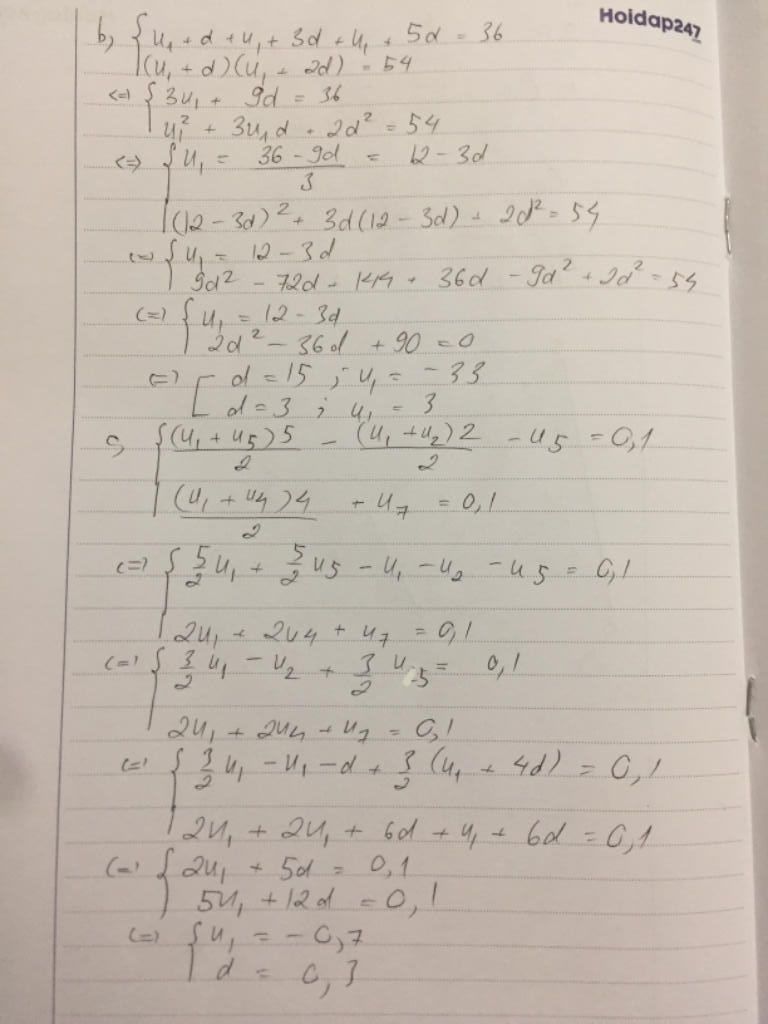 Hoidap247
b, { u₁ + d + u₁ + 3d + u₁ + 5d = 36
(u₁ + d)(u₁ + 2d) = 54
<=> { 3u₁ + 9d = 36
u₁² + 3u₁d + 2d² = 54
<=> { u₁ = (36 - 9d)/3 = 12 - 3d
(12 - 3d)² + 3d(12 - 3d) + 2d² = 54
<=> { u₁ = 12 - 3d
9d² - 72d + 144 + 36d - 9d² + 2d² = 54
<=> { u₁ = 12 - 3d
2d² - 36d + 90 = 0
<=> [ d = 15 ; u₁ = -33
d = 3 ; u₁ = 3
c, { (u₁ + u₅)5/2 - (u₁ + u₂)2/2 - u₅ = 0,1
(u₁ + u₄)4/2 + u₇ = 0,1
<=> { 5/2 u₁ + 5/2 u₅ - u₁ - u₂ - u₅ = 0,1
2u₁ + 2u₄ + u₇ = 0,1
<=> { 3/2 u₁ - u₂ + 3/2 u₅ = 0,1
2u₁ + 2u₄ + u₇ = 0,1
<=> { 3/2 u₁ - u₁ - d + 3/2 (u₁ + 4d) = 0,1
2u₁ + 2u₁ + 6d + u₁ + 6d = 0,1
<=> { 2u₁ + 5d = 0,1
5u₁ + 12d = 0,1
<=> { u₁ = -0,7
d = 0,3